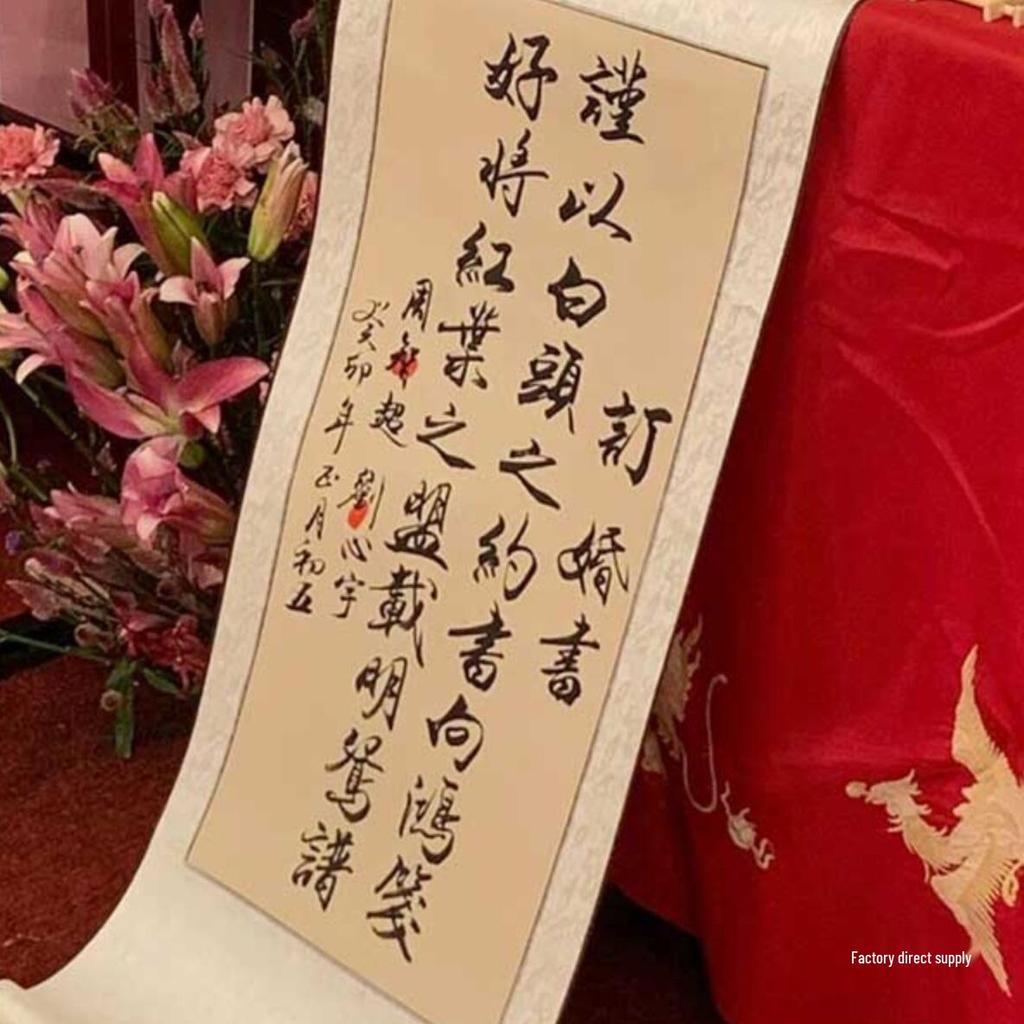 訂婚書
謹以白頭之約書向鴻箋
好將紅葉之盟載明鴛譜
周超 劉心宇
癸卯年正月初五
Factory direct supply